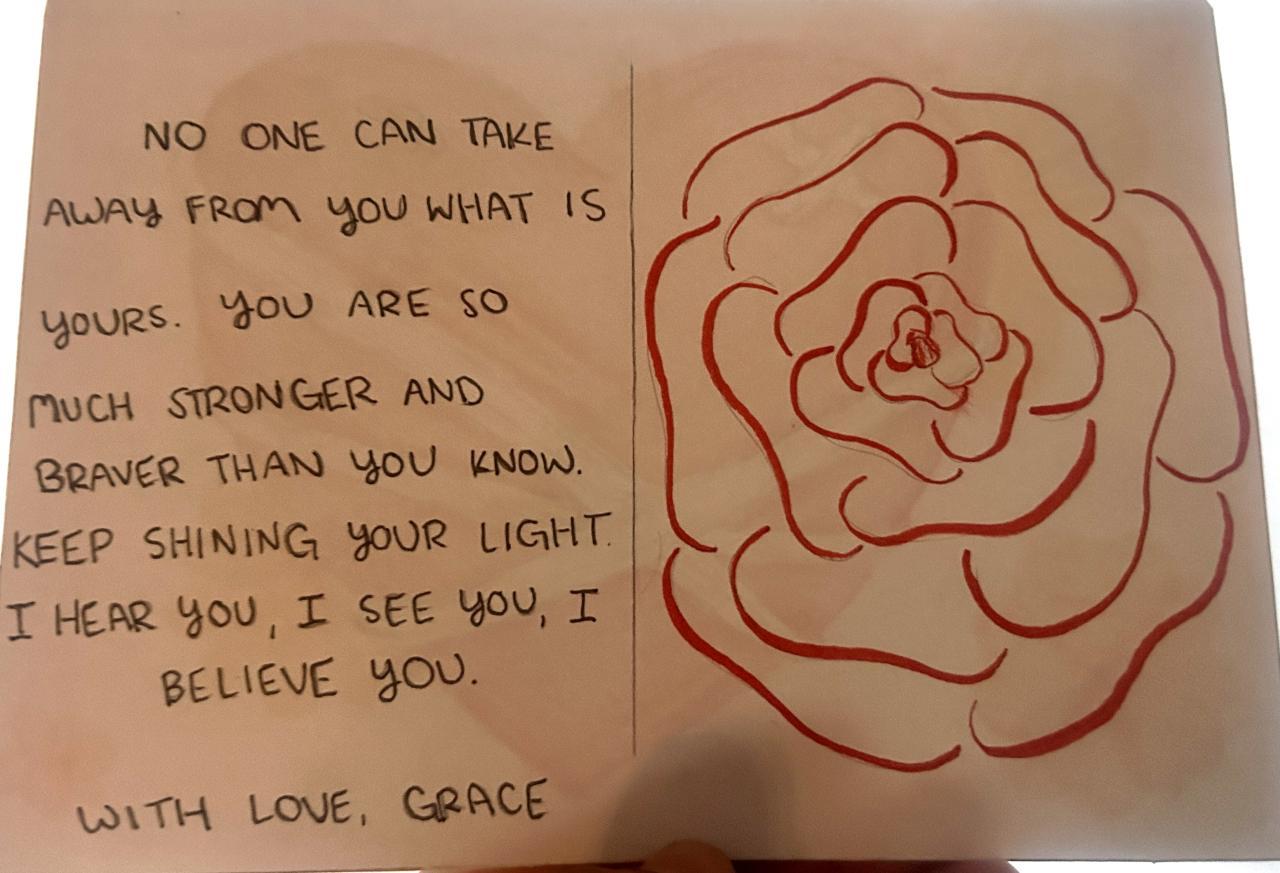 NO ONE CAN TAKE
AWAY FROM YOU WHAT IS
YOURS. YOU ARE SO
MUCH STRONGER AND
BRAVER THAN YOU KNOW.
KEEP SHINING YOUR LIGHT.
I HEAR YOU, I SEE YOU, I
BELIEVE YOU.
WITH LOVE, GRACE